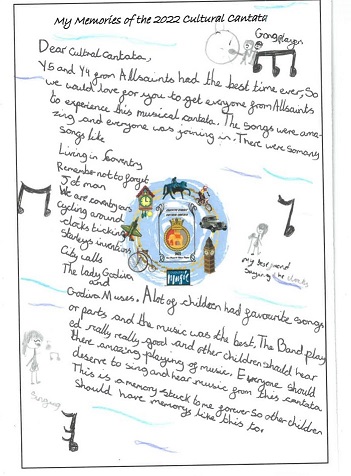 My Memories of the 2022 Cultural Cantata
Gong player
Dear Cultral Cantata,
Y5 and Y4 from Allsaints had the best time ever, So
we would love for you to get everyone from Allsaints
to experience this musical cantata. The songs were ama-
zing and everyone was joining in. There were so many
songs like
Living in Coventry
Remember not to forget
Jet man
We are coventry ears
Cycling around
clocks ticking
starleys inventions
City calls
The lady Godiva
and
Godiva Muses. A lot of children had favourite songs
or parts and the music was the best. The Band play
ed really really good and other children should hear
there amazing playing of music. Everyone should
deserve to sing and hear music from this cantata
This is a memory stuck to me forever so other children
should have memorys like this to.
music
my best friend
singing